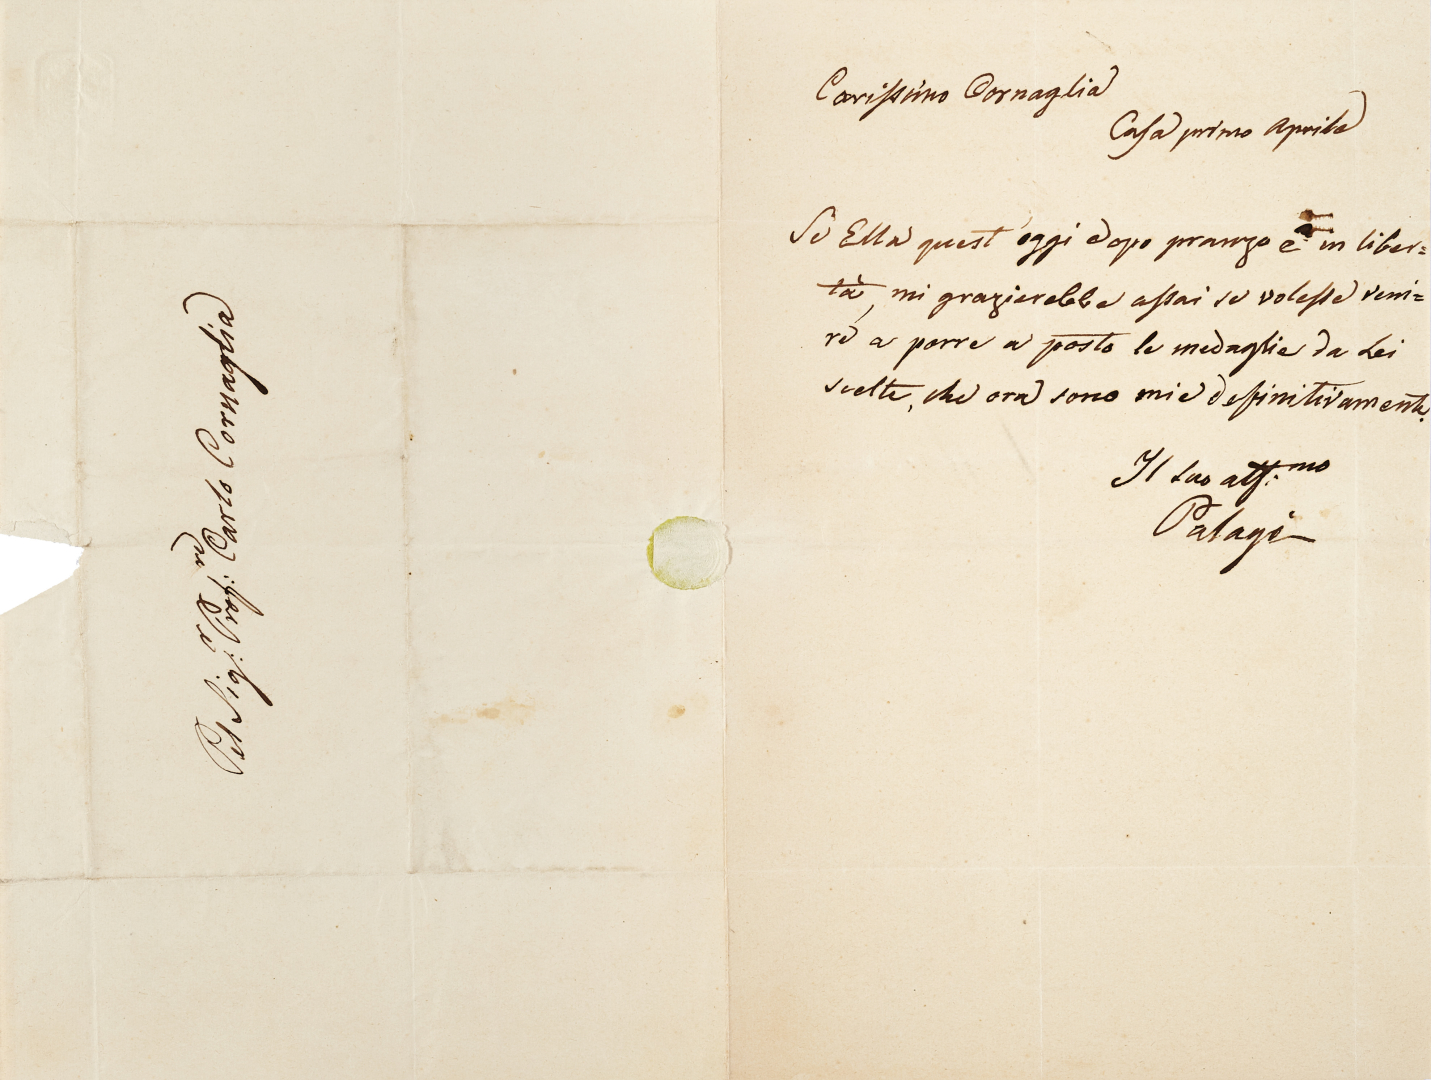 Carissimo Cornaglia
Casa primo Aprile
Se Ella quest'oggi dopo pranzo è in liber=
tà, mi grazierebbe assai se volesse veni=
re a porre a posto le medaglie da Lei
scelte, che ora sono mie definitivamente.
Il suo aff:mo
Palagi
Pel Sig: Prof:re Carlo Cornaglia